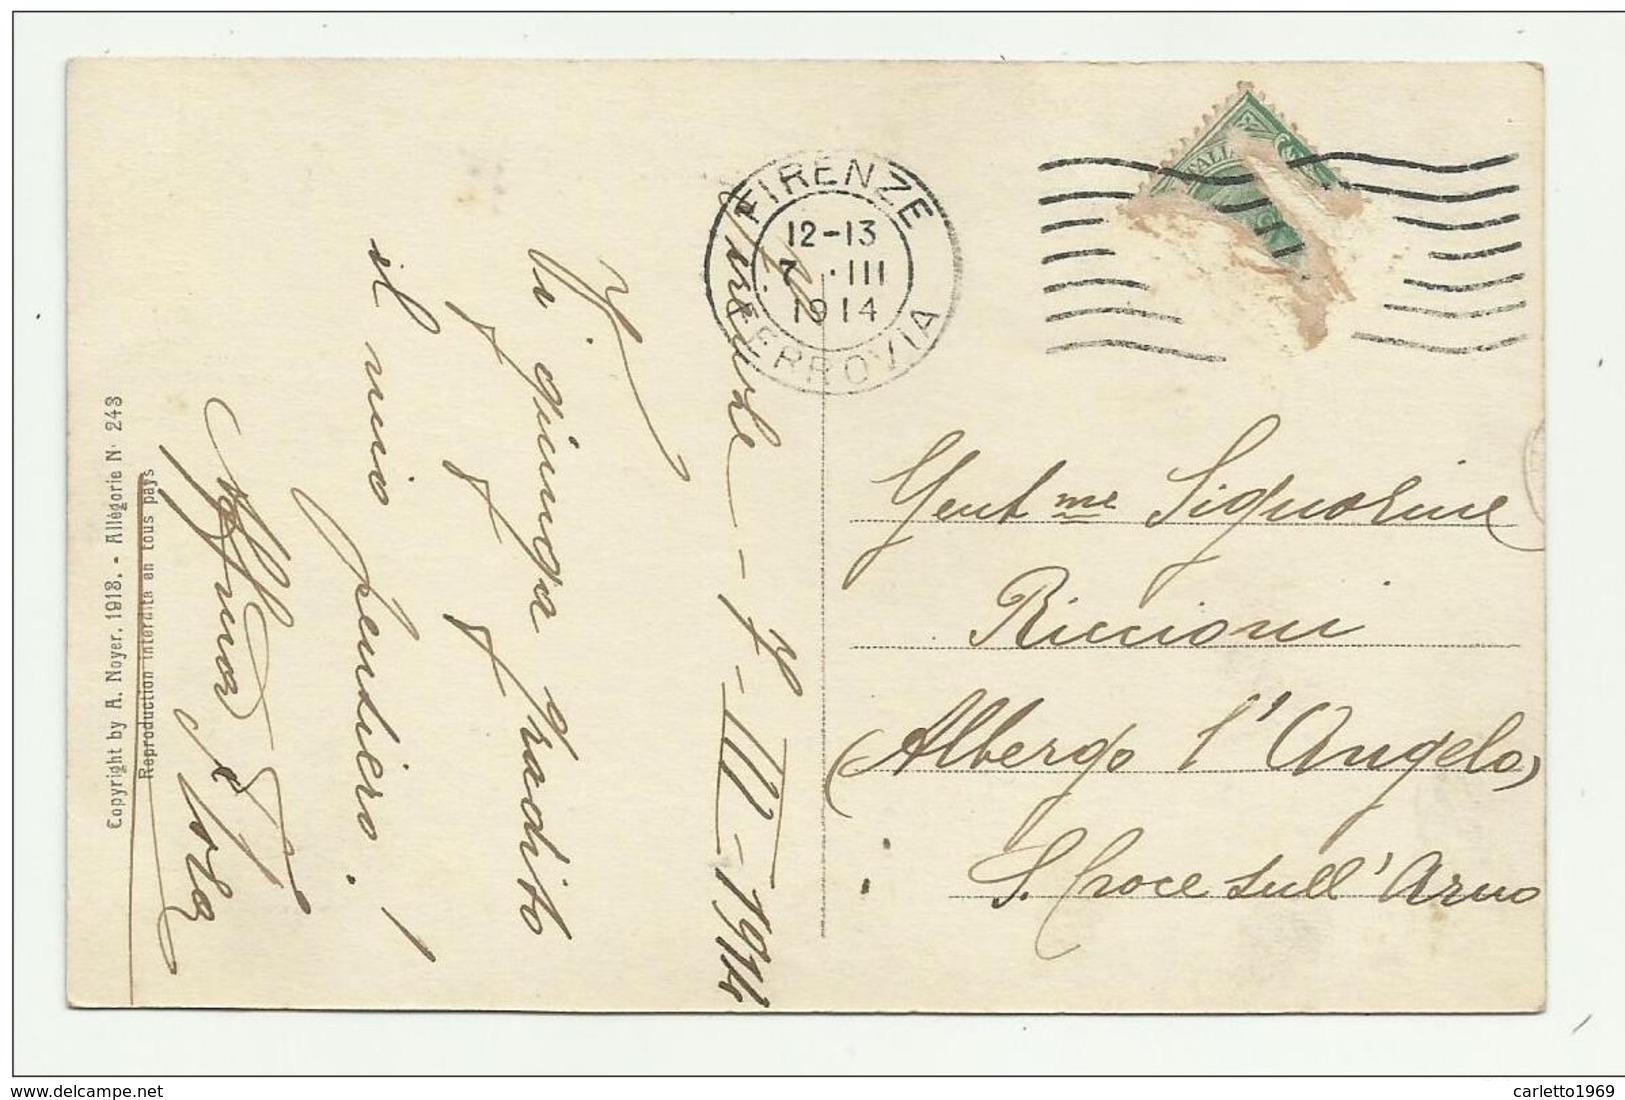 Firenze 7-III-1914
Vi giunga gradito
il mio pensiero.
Copyright by A. Noyer. 1913. - Allégorie N. 243
Reproduction interdite en tous pays
FIRENZE
12-13
7 . III
1914
FERROVIA
Gent.me Signorine
Riccioni
(Albergo l'Angelo)
S. Croce sull'Arno
delcampe.net
carletto1969